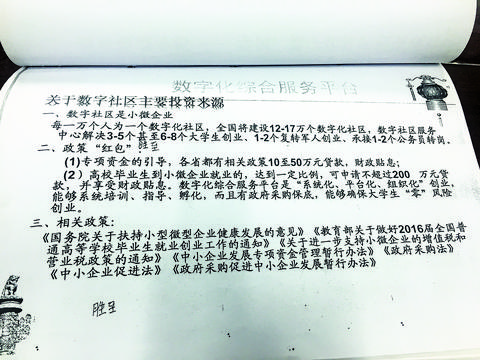 数字化综合服务平台
关于数字社区主要投资来源
一、数字社区是小微企业
每一万个人为一个数字化社区，全国将建设12-17万个数字化社区，数字社区服务
中心解决3-5个甚至6-8个大学生创业、1-2个复转军人创业、承接1-2个公务员转岗。
二、政策“红包”
(1)专项资金的引导，各省都有相关政策10至50万元贷款，财政贴息；
(2）高校毕业生到小微企业就业的，达到一定比例，可申请不超过200 万元贷
款，并享受财政贴息。数字化综合服务平台是“系统化、平台化、组织化”创业，
能够系统培训、指导、孵化，而且有政府采购保底，能够确保大学生“零”风险
创业。
三、相关政策：
《国务院关于扶持小型微型企业健康发展的意见》《教育部关于做好2016届全国普
通高等学校毕业生就业创业工作的通知》《关于进一步支持小微企业的增值税和
营业税政策的通知》《中小企业发展专项资金管理暂行办法》《政府采购法》
《中小企业促进法》《政府采购促进中小企业发展暂行办法》